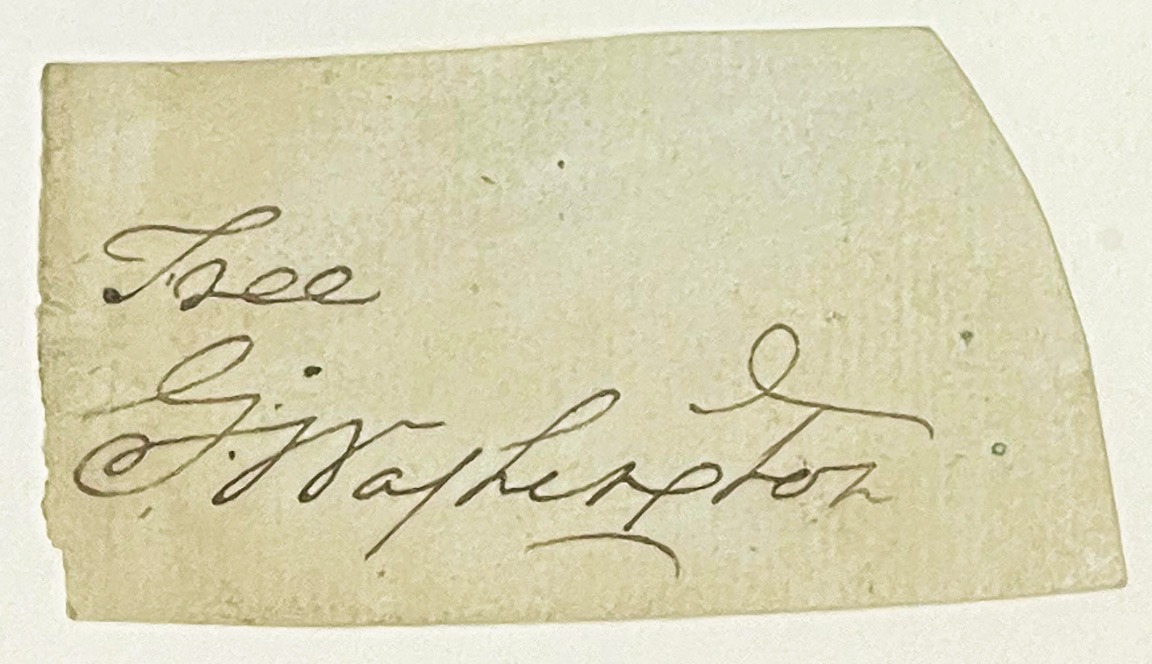 Free
G: Washington